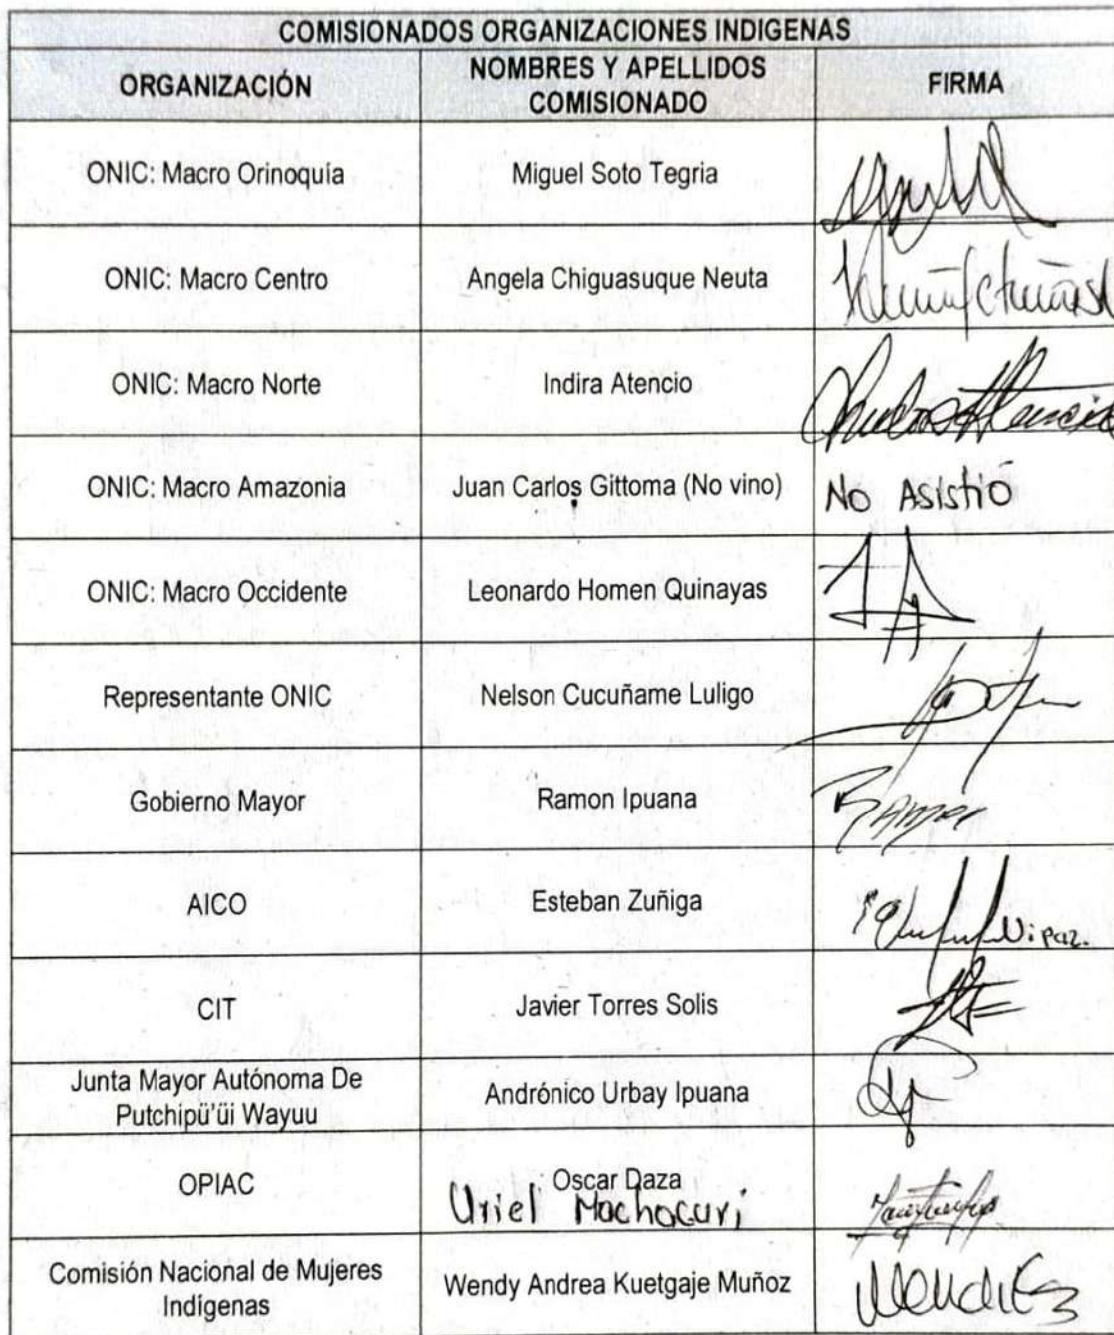 COMISIONADOS ORGANIZACIONES INDIGENAS
ORGANIZACIÓN
NOMBRES Y APELLIDOS
COMISIONADO
FIRMA
ONIC: Macro Orinoquía
Miguel Soto Tegria
ONIC: Macro Centro
Angela Chiguasuque Neuta
ONIC: Macro Norte
Indira Atencio
ONIC: Macro Amazonia
Juan Carlos Gittoma (No vino)
No Asistió
ONIC: Macro Occidente
Leonardo Homen Quinayas
Representante ONIC
Nelson Cucuñame Luligo
Gobierno Mayor
Ramon Ipuana
AICO
Esteban Zuñiga
CIT
Javier Torres Solis
Junta Mayor Autónoma De
Putchipü'üi Wayuu
Andrónico Urbay Ipuana
OPIAC
Oscar Daza
Uriel Mochacuri
Comisión Nacional de Mujeres
Indígenas
Wendy Andrea Kuetgaje Muñoz